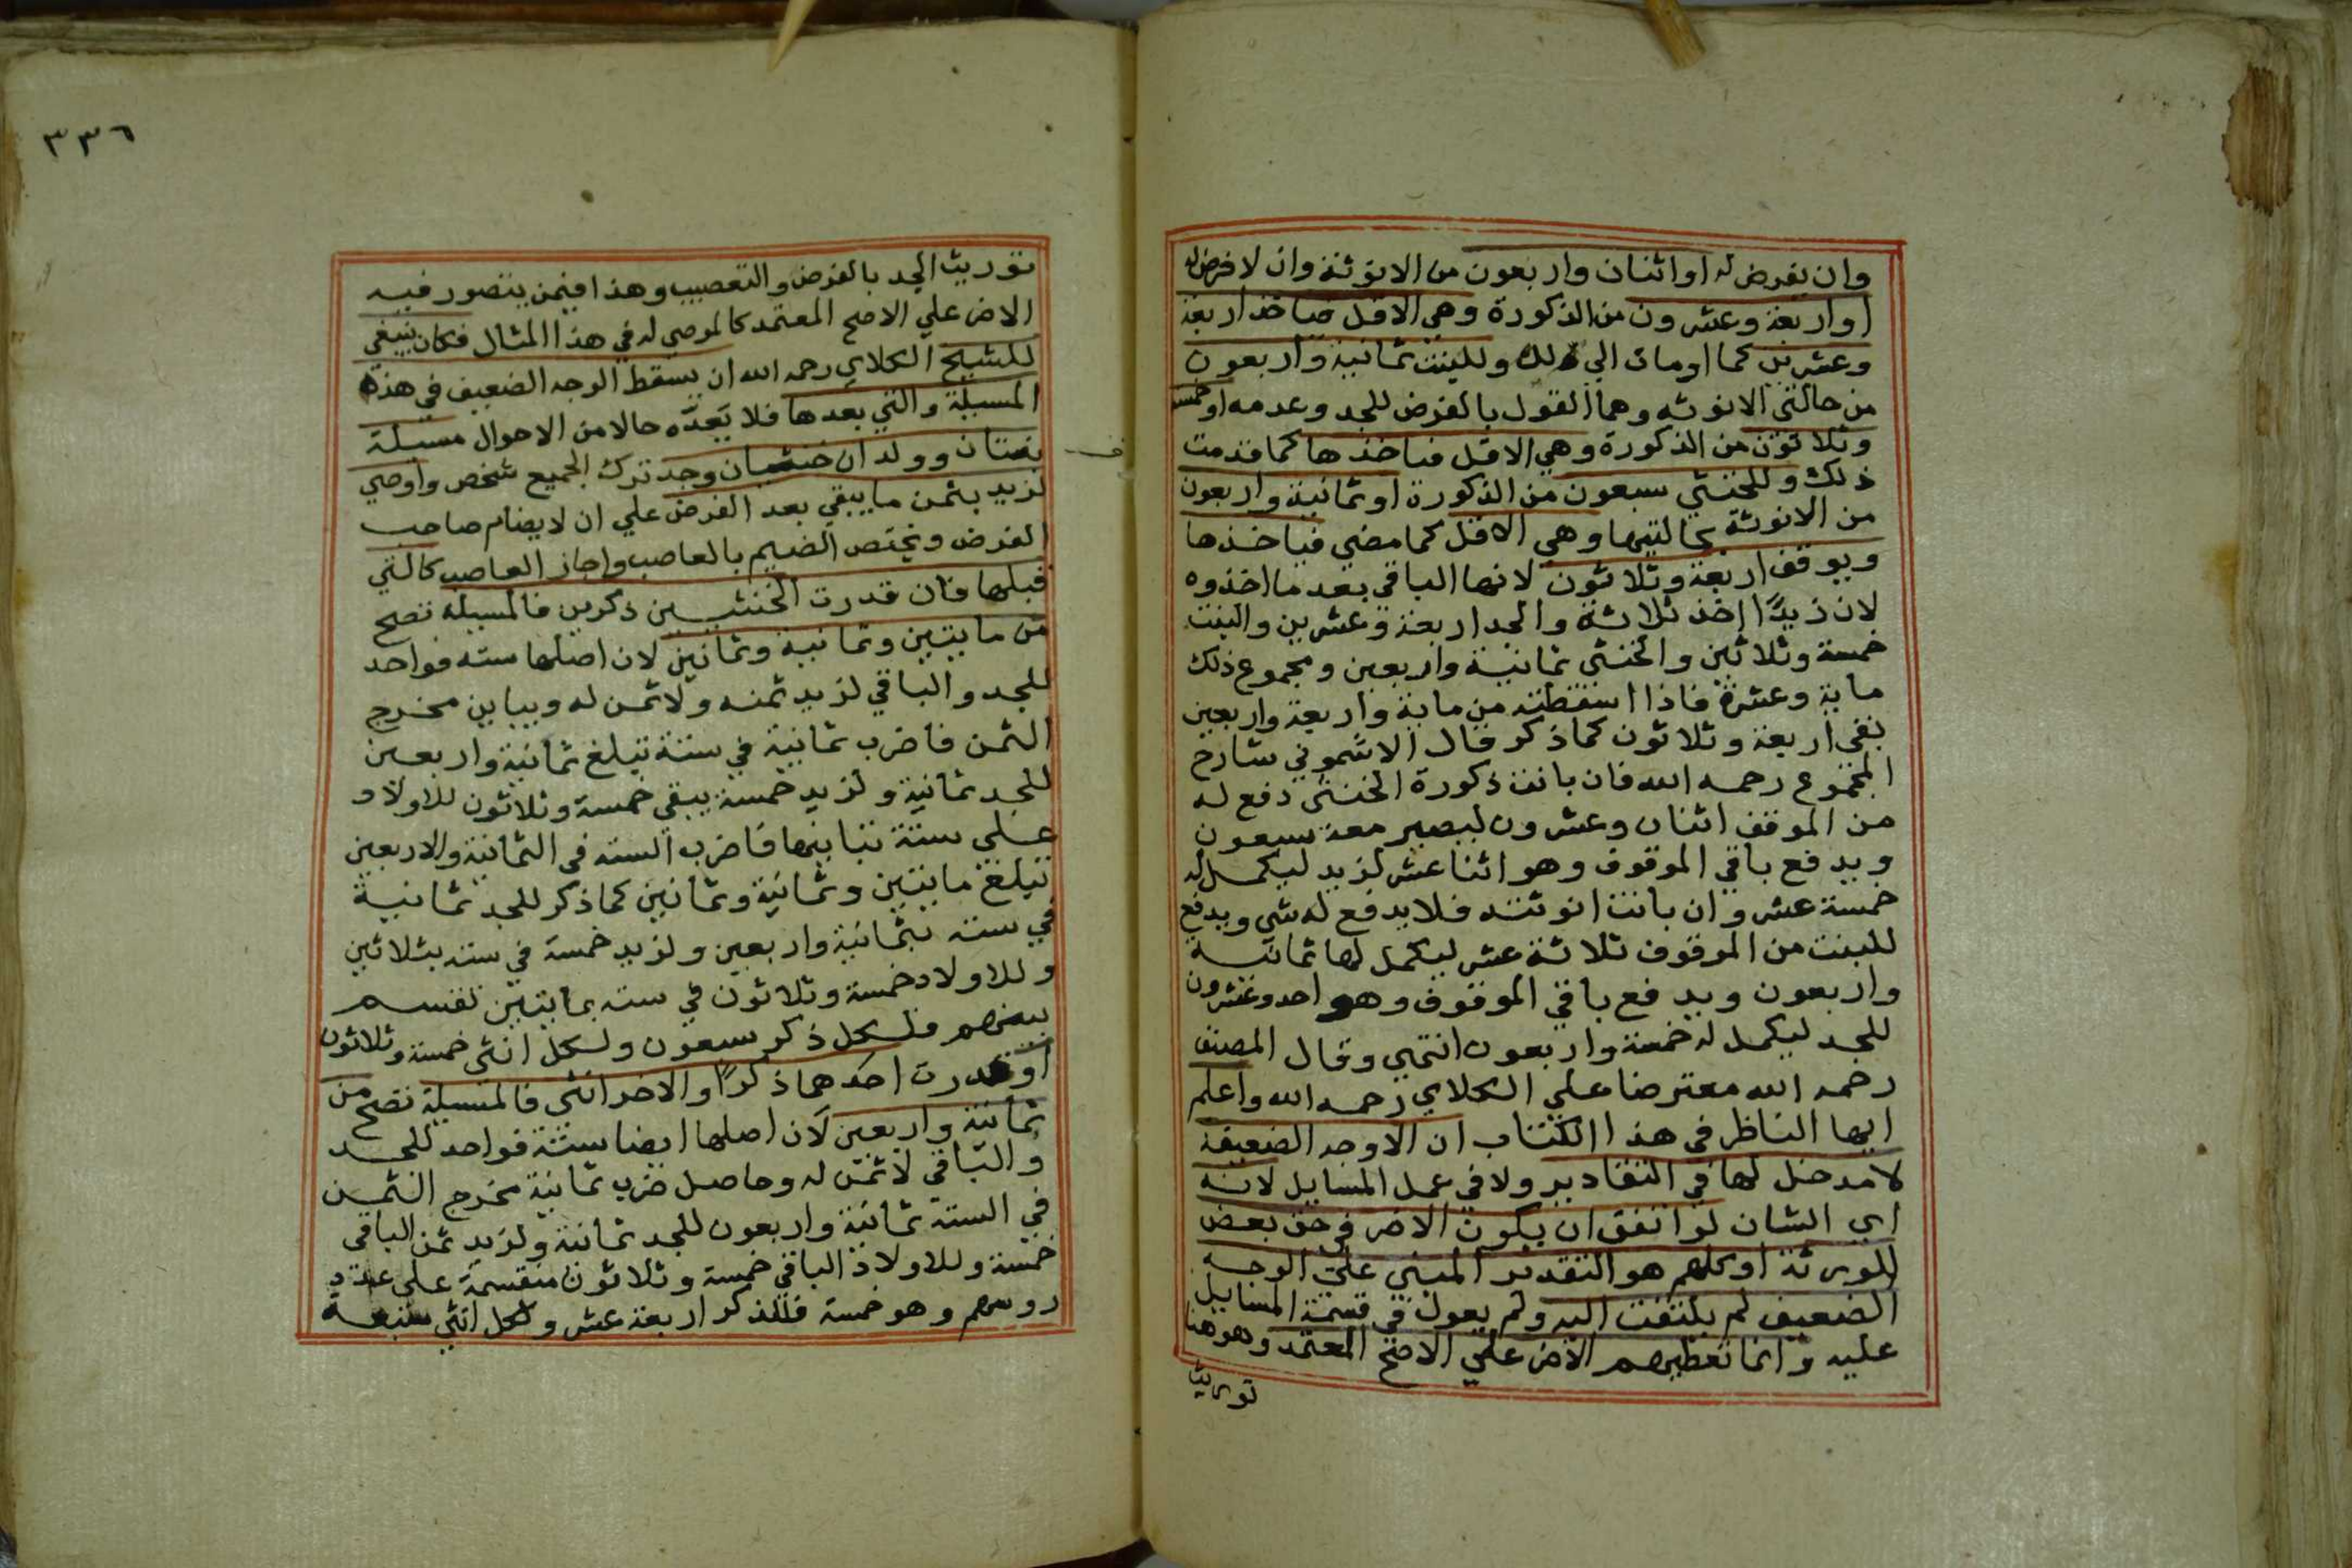 وان يفرض له او اثنان واربعون من الانوثة وان لا فرض له
او اربعة وعشرون من الذكورة وهي الاقل فياخذ اربعة
وعشرين كما اومات الي ذلك وللبنت ثمانية واربعون
من حالتي الانوثه وهما القول بالفرض للجد وعدمه او خمسة
وثلاثون من الذكورة وهي الاقل فياخذها كما قدمت
ذلك وللخنثي سبعون من الذكورة او ثمانية واربعون
من الانوثة بحالتيها وهي الاقل كما مضي فياخذها
ويوقف اربعة وثلاثون لانها الباقي بعد ما اخذوه
لان زيدًا اخذ ثلاثة والجد اربعة وعشرين والبنت
خمسة وثلاثين والخنثي ثمانية واربعين ومجموع ذلك
ماية وعشرة فاذا اسقطته من ماية واربعة واربعين
بقي اربعة وثلاثون كما ذكر قال الاشموني شارح
المجموع رحمه الله فان بانت ذكورة الخنثي دفع له
من الموقف اثنان وعشرون ليصير معه سبعون
ويدفع باقي الموقوف وهو اثنا عشر لزيد ليكمل له
خمسة عشر وان بانت انوثته فلا يدفع له شي ويدفع
للبنت من الموقوف ثلاثة عشر ليكمل لها ثمانية
واربعون ويدفع باقي الموقوف وهو احد وعشرون
للجد ليكمل له خمسة واربعون انتهي وقال المصنف
رحمه الله معترضا علي الكلاي رحمه الله واعلم
ايها الناظر في هذا الكتاب ان الاوجه الضعيفة
لا مدخل لها في التقادير ولا في عمل المسايل لانه
اي الشان لو اتفق ان يكون الاضر في حق بعض
الورثة او كلهم هو التقدير المبني علي الوجه
الضعيف لم يلتفت اليه ولم يعول في قسمة المسايل
عليه وانما تعطيهم الاضر علي الاصح المعتمد وهو هنا
توريث
٣٣٦
توريث الجد بالفرض والتعصيب وهذا فيمن يتصور فيه
الاضر علي الاصح المعتمد كالموصي له في هذا المثال فكان ينبغي
للشيخ الكلاي رحمه الله ان يسقط الوجه الضعيف في هذه
المسيلة والتي بعدها فلا يعدّه حالا من الاحوال مسيلة
بنتان وولدان خنثيان وجد ترك الجميع شخص واوصي
لزيد بثمن ما يبقي بعد الفرض علي ان لا يضام صاحب
الفرض ويختص الضيم بالعاصب واجاز العاصب كالتي
قبلها فان قدرت الخنثيين ذكرين فالمسيلة تصح
من مايتين وثمانية وثمانين لان اصلها سته فواحد
للجد والباقي لزيد ثمنه ولا ثمن له ويباين مخرج
الثمن فاضرب ثمانية في ستة تبلغ ثمانية واربعين
للجد ثمانية ولزيد خمسة يبقي خمسة وثلاثون للاولاد
علي ستة تباينها فاضرب السته في الثمانية والاربعين
تبلغ مايتين وثمانية وثمانين كما ذكر للجد ثمانية
في سته بثمانية واربعين ولزيد خمسة في سته بثلاثين
وللاولاد خمسة وثلاثون في سته بمايتين تقسم
بينهم فلكل ذكر سبعون ولكل انثي خمسة وثلاثون
او قدرت احدهما ذكرًا والاخر انثي فالمسيلة تصح من
ثمانية واربعين لان اصلها ايضا ستة فواحد للجد
والباقي لا ثمن له وحاصل ضرب ثمانية مخرج الثمن
في الستة ثمانية واربعون للجد ثمانية ولزيد ثمن الباقي
خمسة وللاولاد الباقي خمسة وثلاثون منقسمة علي عدد
روسهم وهو خمسة فللذكر اربعة عشر ولكل انثي سبعة